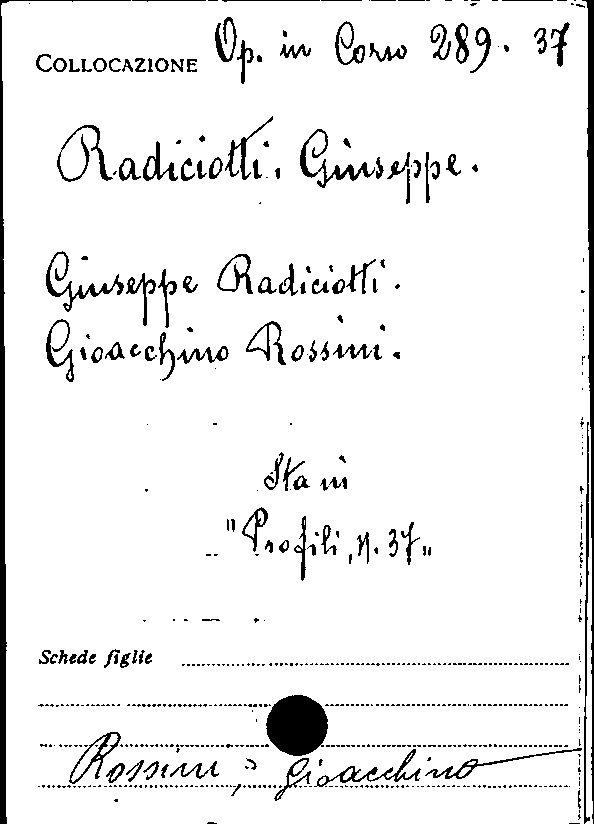 COLLOCAZIONE Op. in Corso 289. 37
Radiciotti. Giuseppe.
Giuseppe Radiciotti.
Gioacchino Rossini.
Sta in
"Profili, N. 37"
Schede figlie
Rossini, Gioacchino